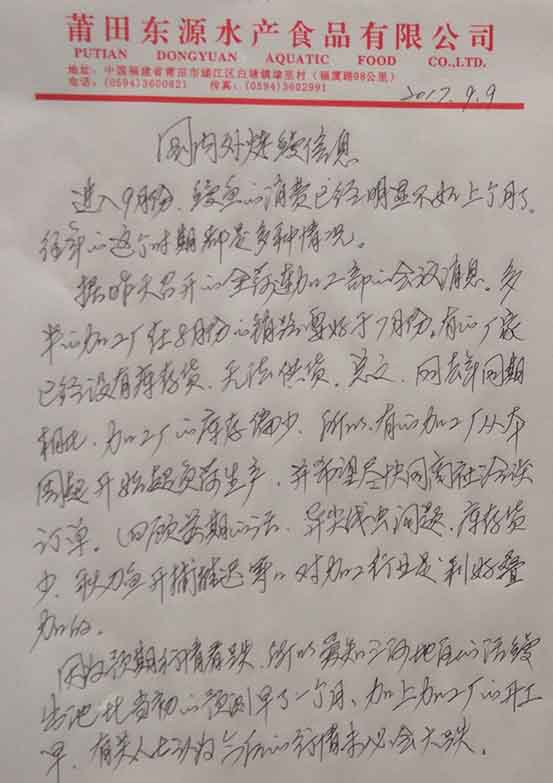 莆田东源水产食品有限公司
PUTIAN DONGYUAN AQUATIC FOOD CO.,LTD.
地址：中国福建省莆田市涵江区白塘镇埭里村（福厦路98公里）
电话：(0594)3600821 传真：(0594)3602991
2017.9.9
国内外烤鳗信息
进入9月份，鳗鱼的消费已经明显不如上个月了。
往年的这个时期都是多种情况。
据昨天召开的全荷连加工部的会议消息，多
半的加工厂在8月份的销路要好于7月份。有的厂家
已经没有库存货，无法供货。总之，同去年同期
相比，加工厂的库存偏少，所以，有的加工厂从本
周起开始超负荷生产，并希望尽快同商社洽谈
订单。回顾前期的话，异尖线虫问题，库存货
少，秋刀鱼开捕推迟等，对加工行业是利好叠
加的。
因为预期行情看跌，所以爱知三河地区的活鳗
出池比当初的预测早了一个月，加上加工厂的开工
早，有关人士认为今后的行情未必会大跌。